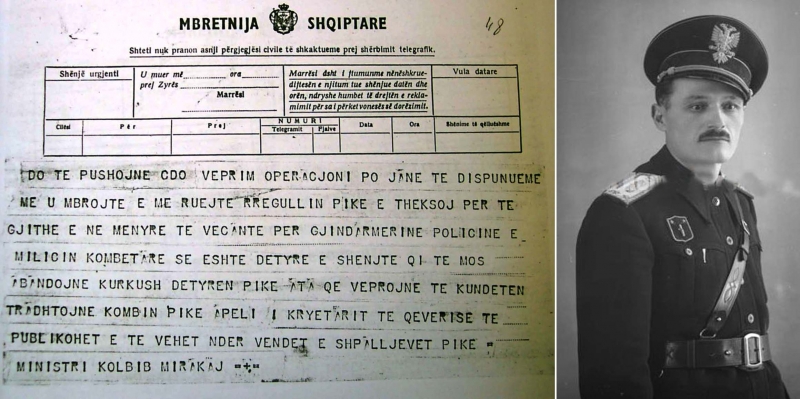 MBRETNIJA SHQIPTARE
48
Shteti nuk pranon asnji përgjegjësi civile të shkaktueme prej shërbimit telegrafik.
Shënjë urgjenti
U muer më ora
prej Zyrës
Marrësi
Marrësi âsht i ftumunme nënëshkrue-
djftesën e njitum tue shënjue datën dhe
orën, ndryshe humbet të drejtën e rekla-
mimit për sa i përket vonesës së dorëzimit.
Vula datare
Cilësi
Për
Prej
NUMURI
Telegramit
Fjalve
Data
Ora
Shënime të
DO TE PUSHOJNE CDO VEPRIM OPERACJONI PO JANE TE DISPUNUEME
ME U MBROJTE E ME RUEJTE RREGULLIN PIKE E THEKSOJ PER TE
GJITHE E NE MENYRE TE VECANTE PER GJINDARMERINE POLICINE E
MILICIN KOMBETARE SE ESHTE DETYRE E SHENJTE QI TE MOS
ABANDOJNE KURKUSH DETYREN PIKE ATA QE VEPROJNE TE KUNDETEN
TRADHTOJNE KOMBIN PIKE APELI I KRYETARIT TE QEVERISE TE
PUBLIKOHET E TE VEHET NDER VENDET E SHPALLJEVET PIKE =
MINISTRI KOLBIB MIRAKAJ =+=